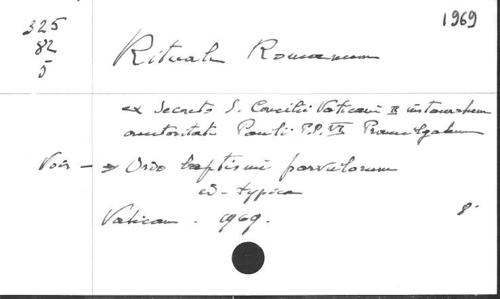 1969
325
82
5
Rituale Romanum
ex Decreto S. Concilii Vaticani II instauratum
auctoritate Pauli P.P. VI Promulgatum
Voir → Ordo baptismi parvulorum
ed. typica
Vatican. 1969. 8°